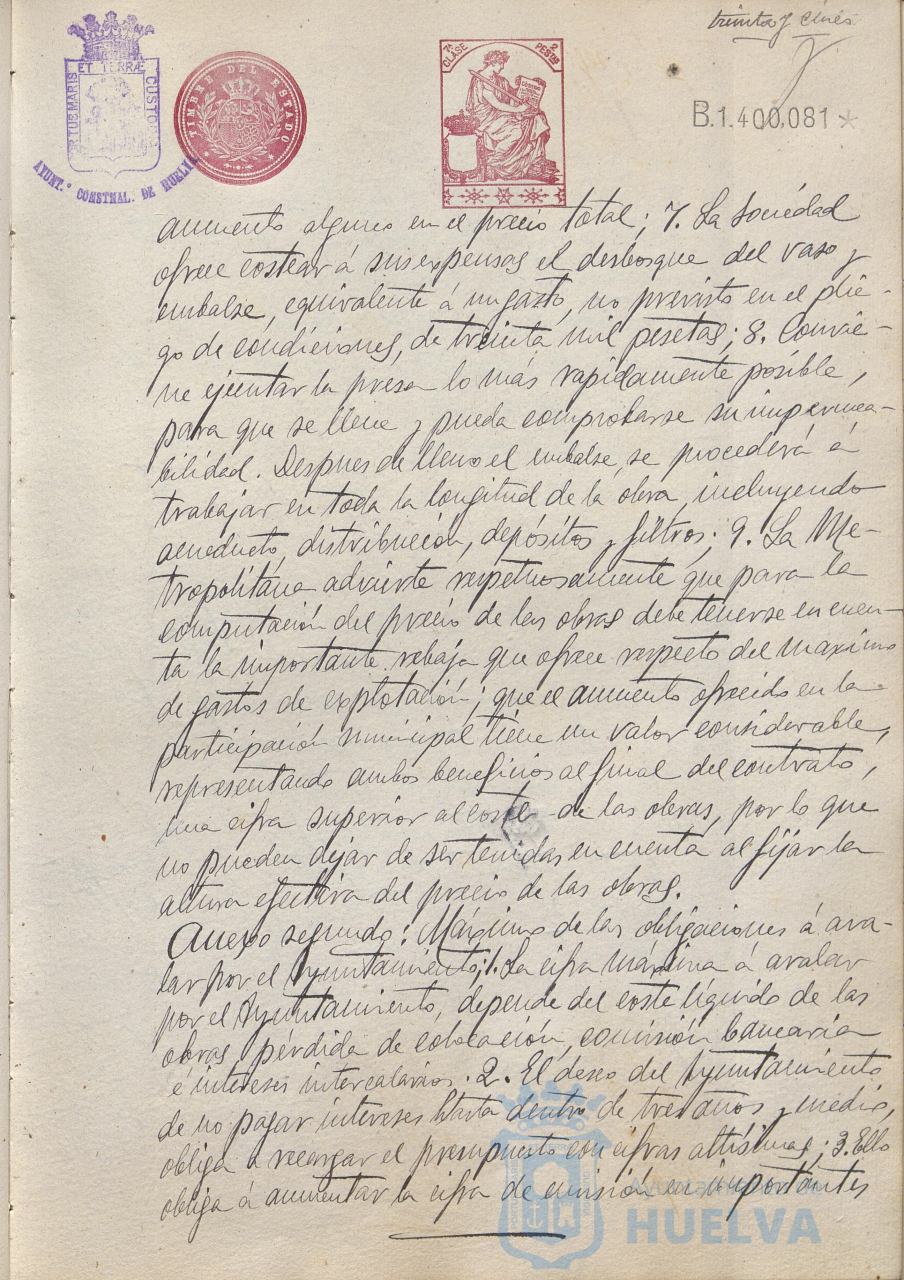 treinta y cinco
PORTUS MARIS ET TERRÆ CUSTODIA
AYUNT.º CONSTNAL. DE HUELVA
TIMBRE DEL ESTADO
7ª CLASE 2 PESETAS
B.1.400,081 *
aumento alguno en el precio total; 7. La Sociedad
ofrece costear á sus expensas el desbosque del vaso y
embalse, equivalente á un gasto, no previsto en el plie-
go de condiciones, de treinta mil pesetas; 8. Convie-
ne ejecutar la presa lo más rapidamente posible,
para que se llene y pueda comprobarse su impermea-
bilidad. Despues de lleno el embalse, se procederá á
trabajar en toda la longitud de la obra, incluyendo
acueducto, distribución, depósitos y filtros; 9. La Me-
tropolitana advierte respetuosamente que para la
computación del precio de las obras debe tenerse en cuen-
ta la importante rebaja que ofrece respecto del maximo
de gastos de explotación; que el aumento ofrecido en la
participación municipal tiene un valor considerable,
representando ambos beneficios al final del contrato,
una cifra superior al coste de las obras, por lo que
no pueden dejar de ser tenidas en cuenta al fijar la
altura efectiva del precio de las obras.
Anexo segundo: Máximo de las obligaciones á ava-
lar por el Ayuntamiento; 1. La cifra máxima á avalar
por el Ayuntamiento, depende del coste líquido de las
obras, pérdida de colocación, comisión bancaria
é intereses intercalarios. 2. El deseo del Ayuntamiento
de no pagar intereses hasta dentro de tres años y medio,
obliga a recargar el presupuesto con cifras altísimas; 3. Ello
obliga á aumentar la cifra de emisión en importantes
Ayuntamiento de
HUELVA